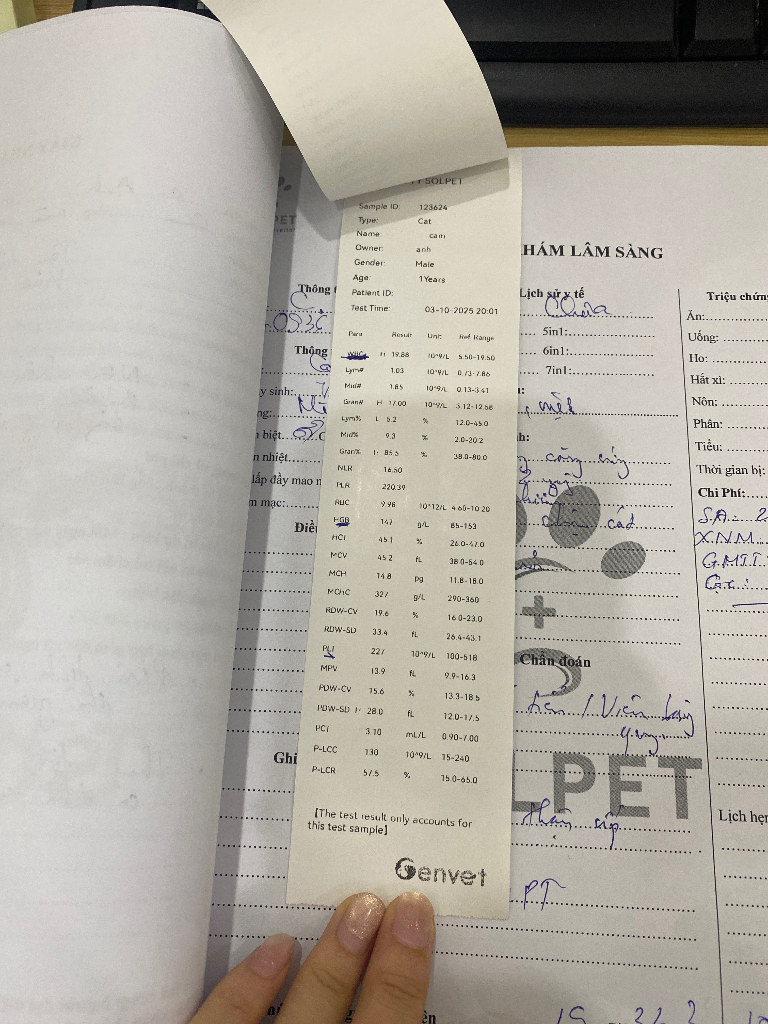 SOLPET
Sample ID: 123624
Type: Cat
Name: cam
Owner: anh
Gender: Male
Age: 1Years
Patient ID:
Test Time: 03-10-2025 20:01
Para Result Unit Ref. Range
WBC H 19.88 10^9/L 5.50-19.50
Lym# 1.03 10^9/L 0.73-7.86
Mid# 1.85 10^9/L 0.13-3.41
Gran# H 17.00 10^9/L 3.12-12.58
Lym% L 5.2 % 12.0-45.0
Mid% 9.3 % 2.0-20.2
Gran% H 85.5 % 38.0-80.0
NLR 16.50
PLR 220.39
RBC 9.98 10^12/L 4.60-10.20
HGB 147 g/L 85-153
HCT 45.1 % 26.0-47.0
MCV 45.2 fL 38.0-54.0
MCH 14.8 pg 11.8-18.0
MCHC 327 g/L 290-360
RDW-CV 19.6 % 16.0-23.0
RDW-SD 33.4 fL 26.4-43.1
PLT 227 10^9/L 100-518
MPV 13.9 fL 9.9-16.3
PDW-CV 15.6 % 13.3-18.5
PDW-SD H 28.0 fL 12.0-17.5
PCT 3.10 mL/L 0.90-7.00
P-LCC 130 10^9/L 15-240
P-LCR 57.5 % 15.0-65.0
[The test result only accounts for
this test sample]
Genvet
HÁM LÂM SÀNG
Thông
Thông
y sinh:
biệt
n nhiệt
lắp đầy mao
m mạc:
Điề
Ghi
Lịch sử y tế
Chưa
5in1:
6in1:
7in1:
mệt
Chẩn đoán
/ Viêm bàng
thận cấp
LPET
Triệu chứng
Ăn:
Uống:
Ho:
Hắt xì:
Nôn:
Phân:
Tiểu:
Thời gian bị:
Chi Phí:
S.A: 2
XNM
Lịch hẹn